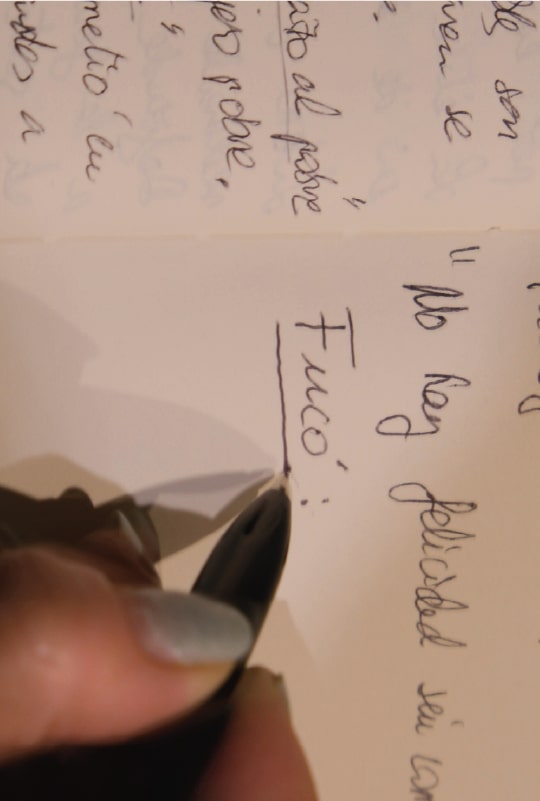 son
se
al pobre"
pobre.
metió en
a
"No hay felicidad sin
Fucó: